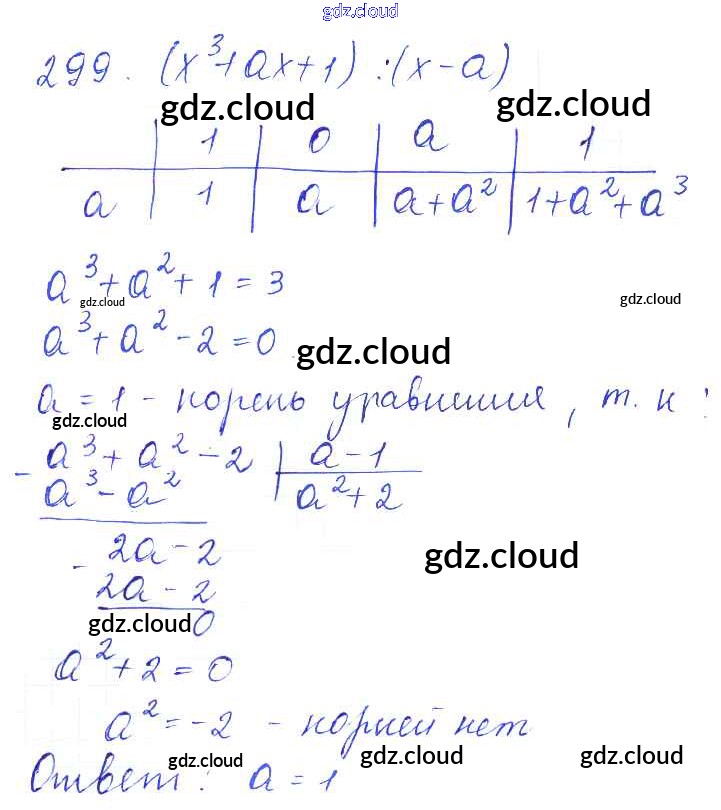 gdz.cloud
299. (x³+ax+1) :(x-a)
gdz.cloud gdz.cloud
1 0 a 1
a 1 a a+a² 1+a²+a³
a³+a²+1=3
gdz.cloud gdz.cloud
a³+a²-2=0
gdz.cloud
a=1 - корень уравнения, т.к:
gdz.cloud
- a³+a²-2 a-1
a³-a² a²+2
- 2a-2
gdz.cloud
2a-2
0
gdz.cloud
a²+2=0
a²=-2 - корней нет
gdz.cloud gdz.cloud gdz.cloud
Ответ: a=1